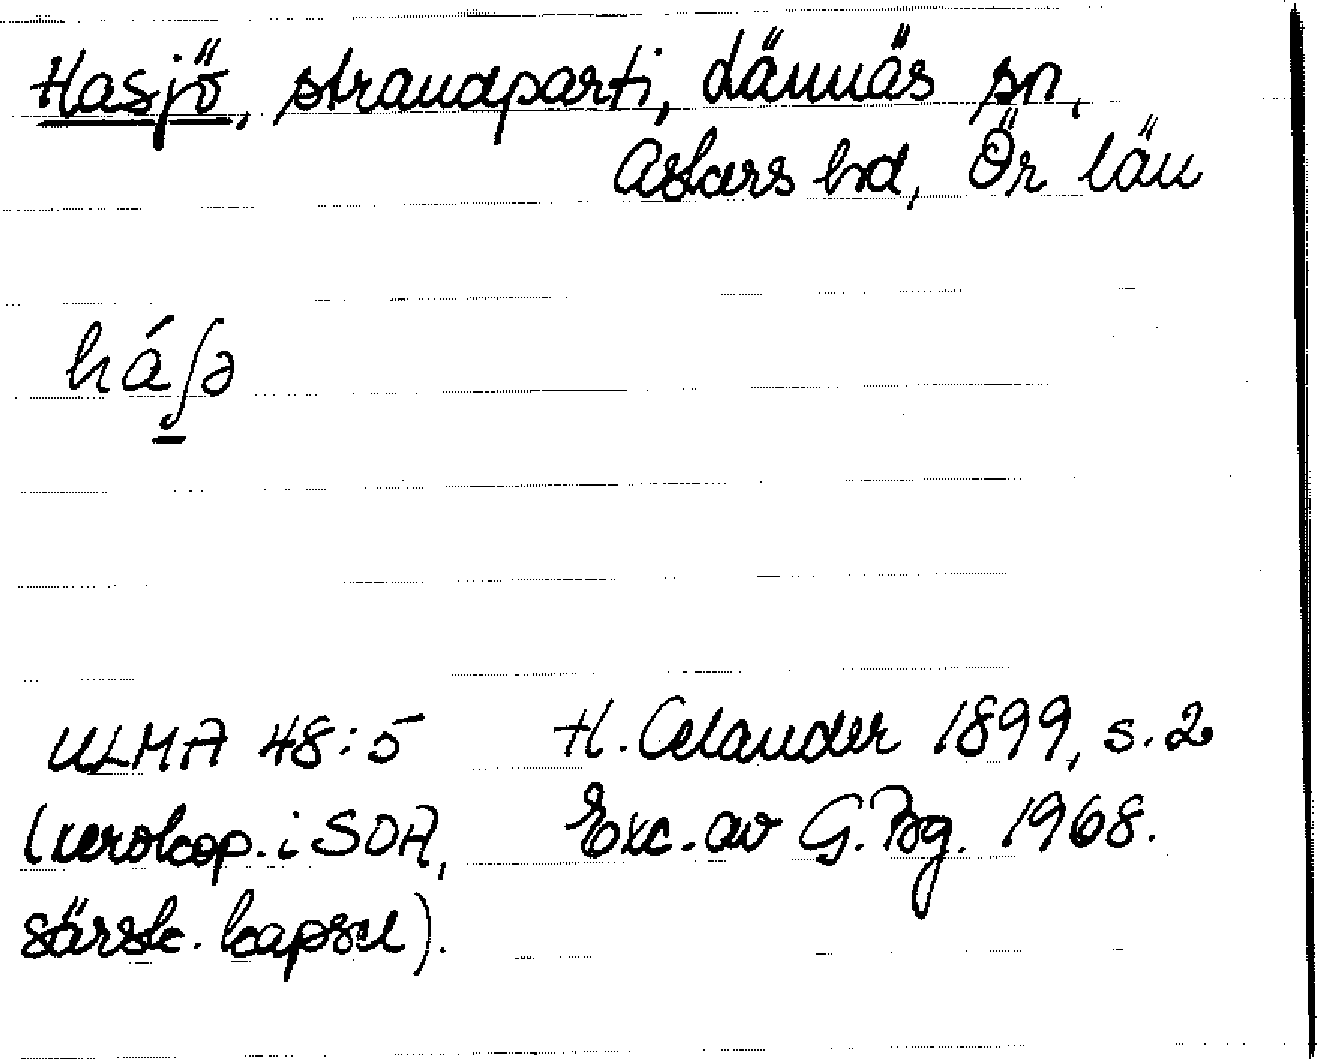 Hasjö, strandparti, Lännäs sn,
Askers hd, Ör län
háʃə
ULMA 48:5 H. Celander 1899, s. 2
(xerokop. i SOA, Exc. av G. Bg. 1968.
särsk. kapsel).